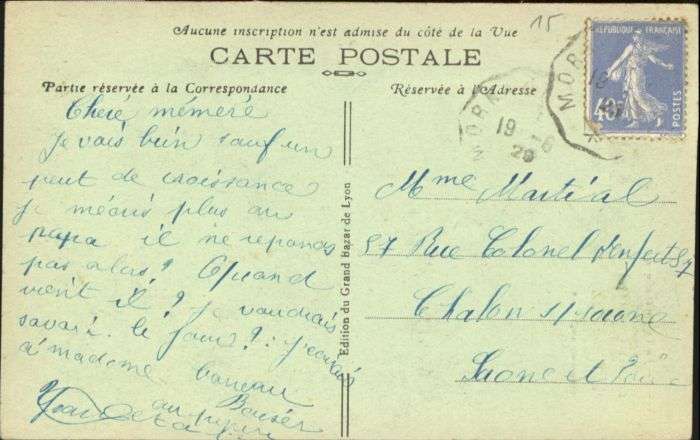 15
Aucune inscription n'est admise du côté de la Vue
CARTE POSTALE
Partie réservée à la Correspondance
Réservée à l'Adresse
RÉPUBLIQUE FRANÇAISE
40c
POSTES
MOR
19 -8
29
MOR
Cheré mémeré
Je vais bien sauf un
peut de croissance
je
plus au
papa il ne reponds
pas alors? Quand
vient il? Je voudrais
savoir le jour?: j'ecrais
à madame
Baiser
au
Edition du Grand Bazar de Lyon
Mme Martial
57 Rue Colonel Denfert 57
Chalon s/saone
Saone et Loire